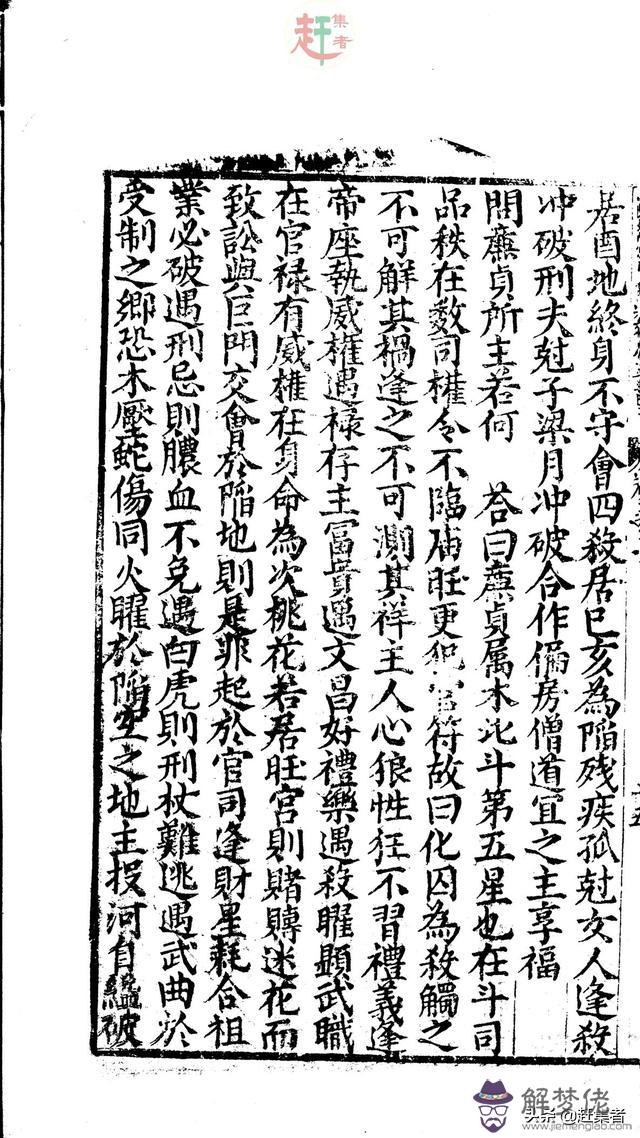 赶集者
居酉地終身不守會四殺居巳亥為陷殘疾孤尅女人逢殺
冲破刑夫尅子梁月冲破合作偏房僧道宜之主享福
問廉貞所主若何 荅曰廉貞属木北斗第五星也在斗司
品秩在數司權令不臨庙旺更犯官符故曰化囚為殺觸之
不可解其禍逢之不可測其祥主人心狼性狂不習禮義逢
帝座執威權遇禄存主冨貴遇文昌好禮樂遇殺曜顕武職
在官禄有威權在身命為次桃花若居旺宮則賭賻迷花而
致訟與巨門交會於陷地則是非起於官司逢財星耗合祖
業必破遇刑忌則膿血不免遇白虎則刑杖難逃遇武曲於
受制之鄉恐木壓蛇傷同火曜於陷空之地主投河自縊破
解梦佬
头条@赶集者
www.jiemenglao.com